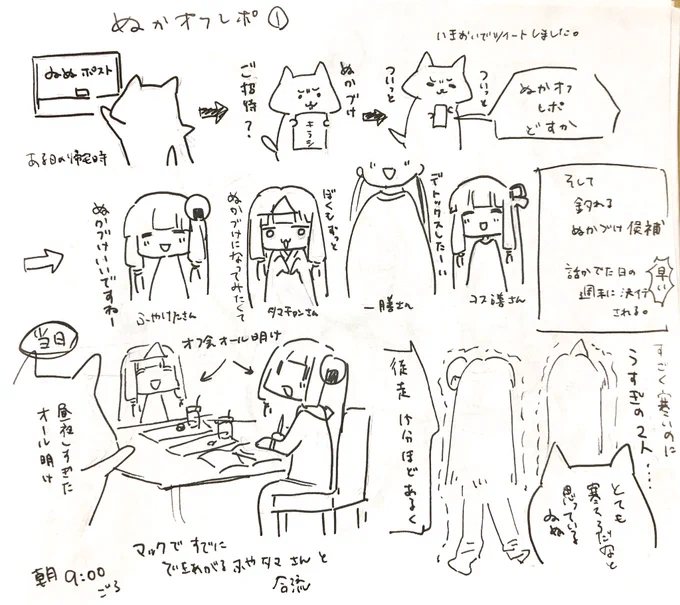 ぬかオフレポ①
いきおいでツイートしました。
ぬぬポスト
ご招待?
ぬかづけ
チラシ
ついっと
ついっと
ぬかオフ
レポ
どすか
ある日の帰宅時
ぬかづけいいですねー
ふーやけたさん
ぼくもずっと
ぬかづけになってみたくて
タマチャンさん
デトックスしたーい
一膳さん
コス譜さん
そして
釣れる
ぬかづけ候補
話がでた日の
週末に決行
される。
早い
当日
昼夜しすぎた
オール明け
オフ会オール明け
マックですでに
できあがるふやタマさんと
合流
朝9:00
ごろ
徒走15分ほどあるく
すごく寒いのに
うすぎの2人....
とても
寒そうだなと
思っている
ぬぬ